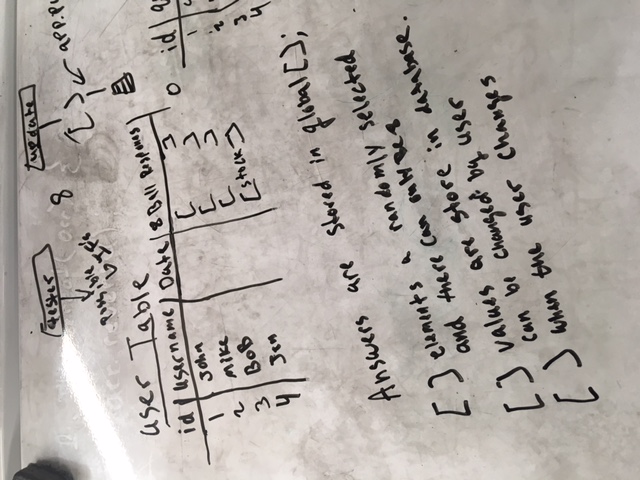 tester
update
8
possible
IF's
User Table
id username Date 8 Ball Response
1 John [ ]
2 Mike [ ]
3 BoB [ ]
4 Jen [stock]
0
id
1
2
3
4
Answers are stored in global [];
[ ] elements a randomly selected
and there can only be 8
[ ] values are store in database.
can be changed by user
[ ] when the user changes